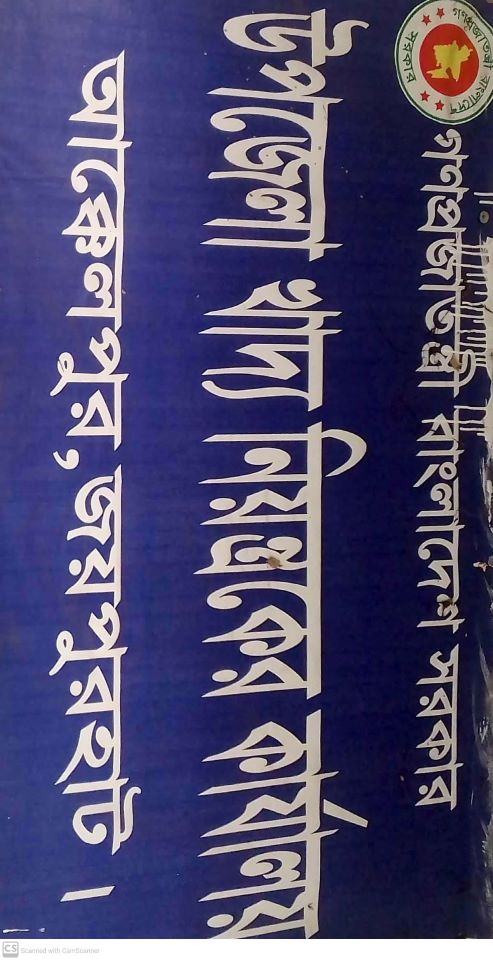 গণপ্রজাতন্ত্রী বাংলাদেশ সরকার
উপজেলা খাদ্য নিয়ন্ত্রকের কার্যালয়
আক্কেলপুর, জয়পুরহাট ।
CS Scanned with CamScanner